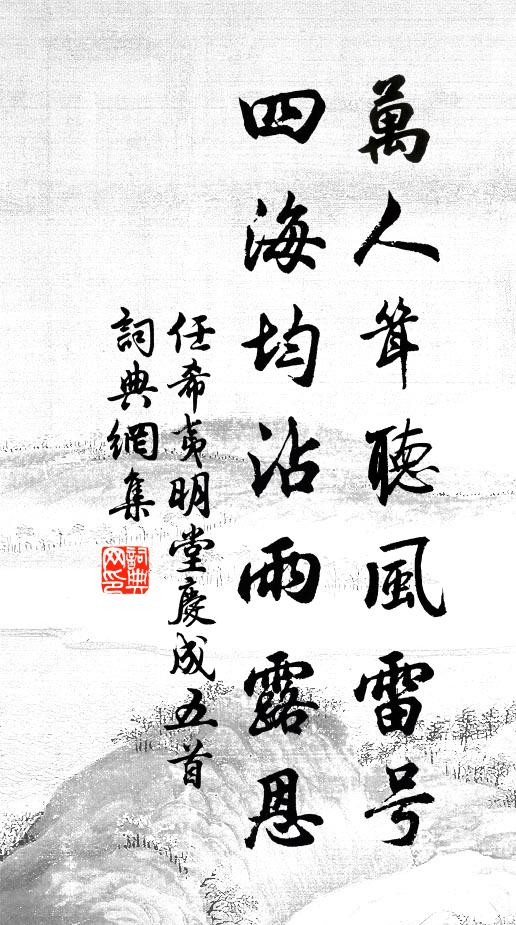 萬人耸聽風雷号
四海均沾雨露恩
任希夷明堂慶成五首
詞典網集
詞典网印